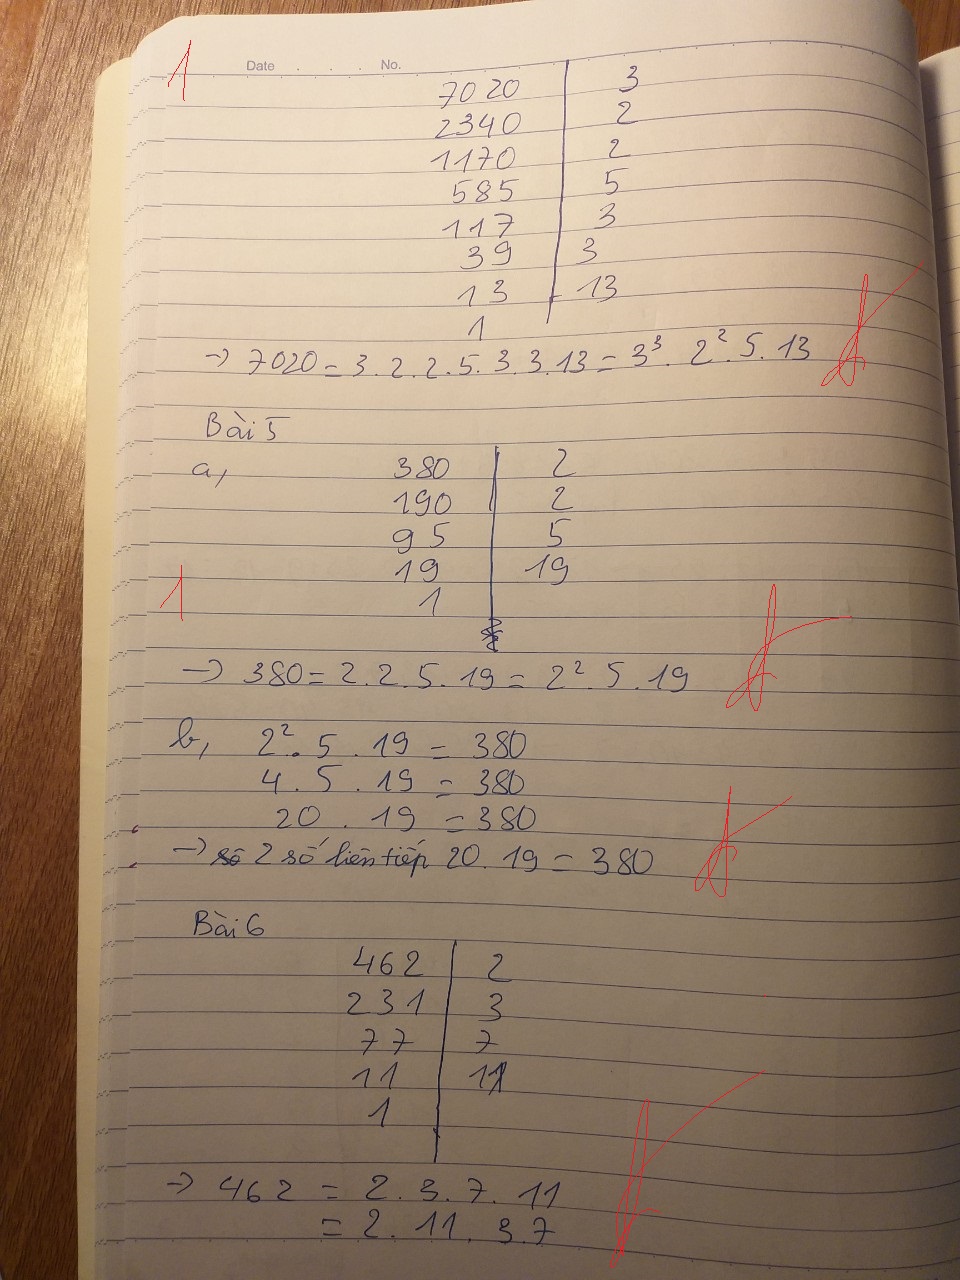 1
Date . . . No.
7020 | 3
2340 | 2
1170 | 2
585 | 5
117 | 3
39 | 3
13 | 13
1
→ 7020 = 3.2.2.5.3.3.13 = 3³.2².5.13
Bài 5
a, 380 | 2
190 | 2
95 | 5
19 | 19
1 1
→ 380 = 2.2.5.19 = 2².5.19
b, 2².5.19 = 380
4.5.19 = 380
20.19 = 380
→ số 2 số liên tiếp 20.19 = 380
Bài 6
462 | 2
231 | 3
77 | 7
11 | 11
1
→ 462 = 2.3.7.11
= 2.11.3.7